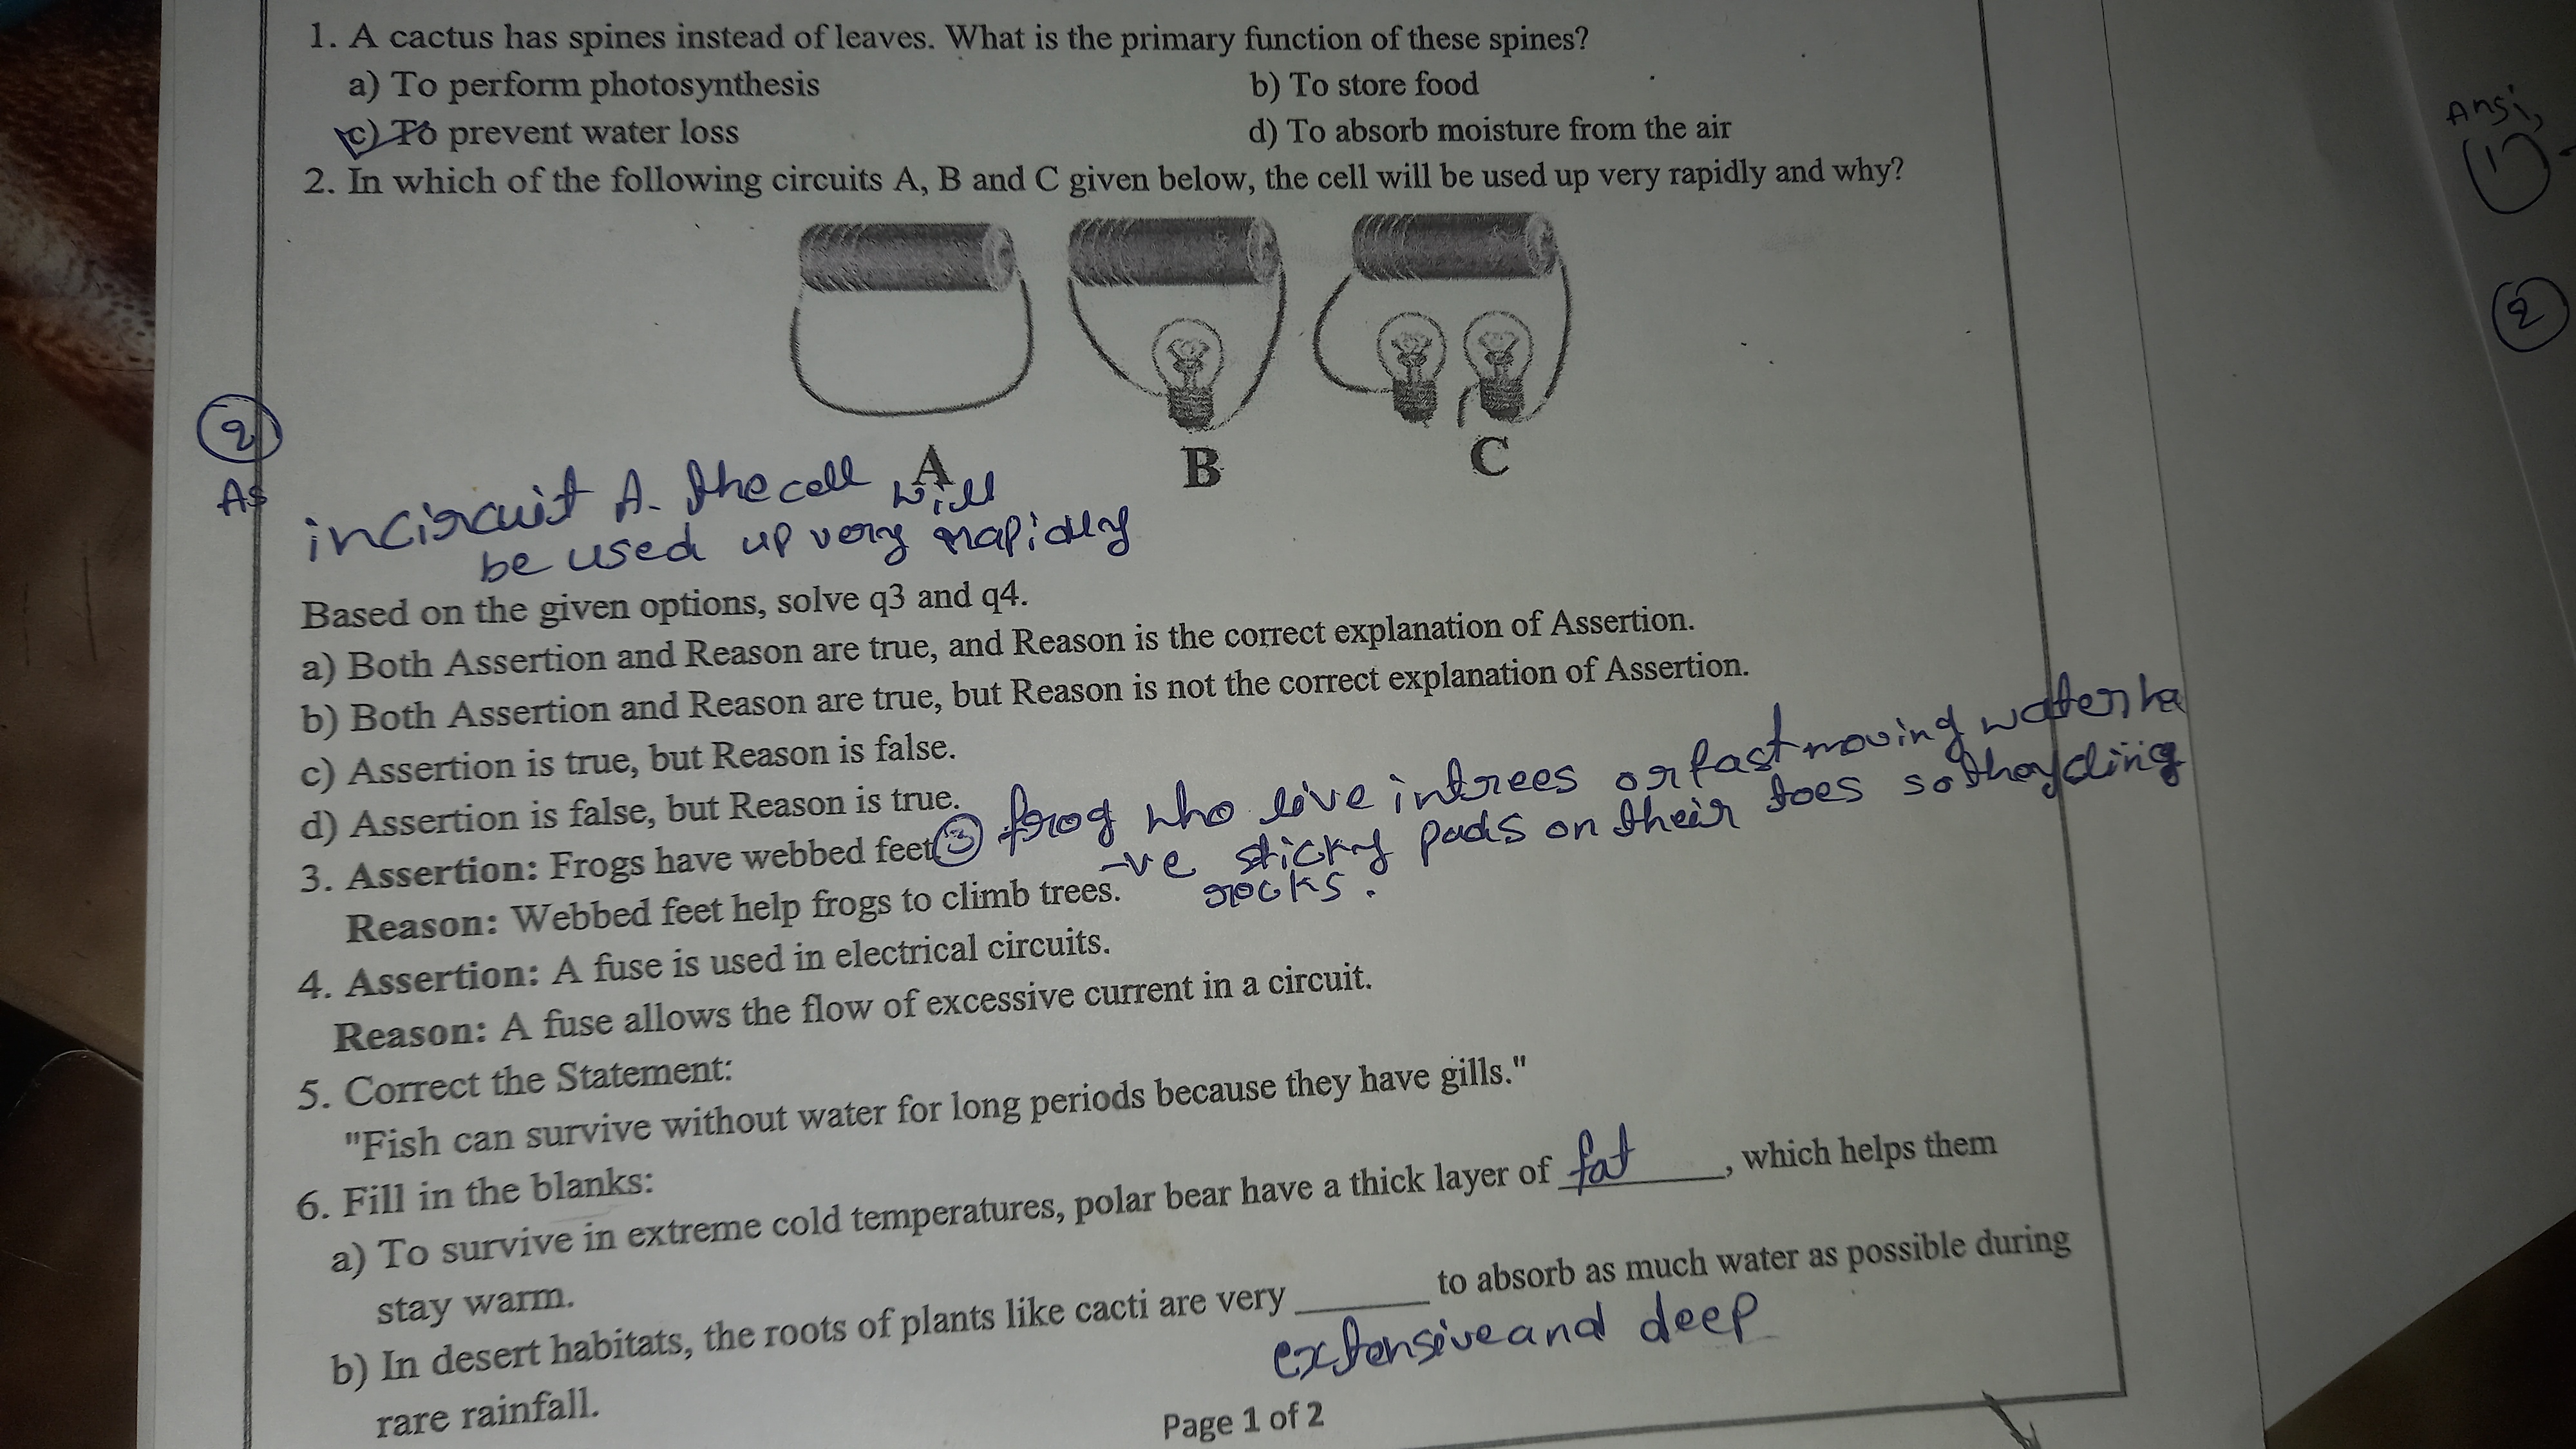 1. A cactus has spines instead of leaves. What is the primary function of these spines?
a) To perform photosynthesis b) To store food
c) To prevent water loss d) To absorb moisture from the air
2. In which of the following circuits A, B and C given below, the cell will be used up very rapidly and why?
Ans:
1
2
2
As
A B C
in circuit A. the cell will
be used up very rapidly
Based on the given options, solve q3 and q4.
a) Both Assertion and Reason are true, and Reason is the correct explanation of Assertion.
b) Both Assertion and Reason are true, but Reason is not the correct explanation of Assertion.
c) Assertion is true, but Reason is false.
d) Assertion is false, but Reason is true.
3. Assertion: Frogs have webbed feet.
Reason: Webbed feet help frogs to climb trees.
3 frog who live in trees or fast moving water ha
-ve sticky pads on their toes so they cling
rocks.
4. Assertion: A fuse is used in electrical circuits.
Reason: A fuse allows the flow of excessive current in a circuit.
5. Correct the Statement:
"Fish can survive without water for long periods because they have gills."
6. Fill in the blanks:
a) To survive in extreme cold temperatures, polar bear have a thick layer of fat, which helps them
stay warm.
b) In desert habitats, the roots of plants like cacti are very ______ to absorb as much water as possible during
extensive and deep
rare rainfall.
Page 1 of 2